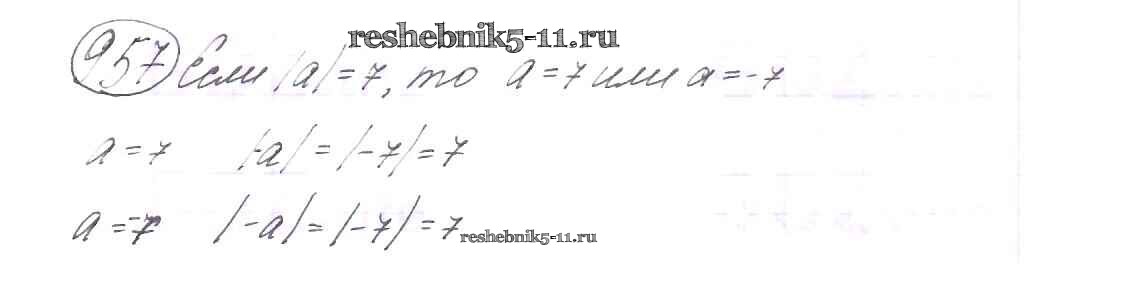 reshebnik5-11.ru
957 Если |a| = 7, то a = 7 или a = -7
a = 7 |-a| = |-7| = 7
a = -7 |-a| = |-7| = 7
reshebnik5-11.ru